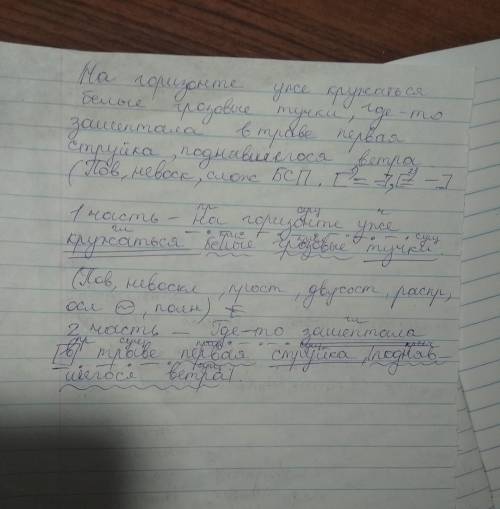 На горизонте уже кружаться
белые грозовые тучки, где-то
зашептала в траве первая
струйка, поднавшегося ветра
(Пов, невоск, слож БСП, [ = – ], [ = – ]
1 часть – На горизонте уже
кружаться белые грозовые тучки.
(Пов, невоскл, прост, двусост, распр,
осл ⊖, полн)
2 часть – Где-то зашептала
[в] траве первая струйка, поднав-
шегося ветра.